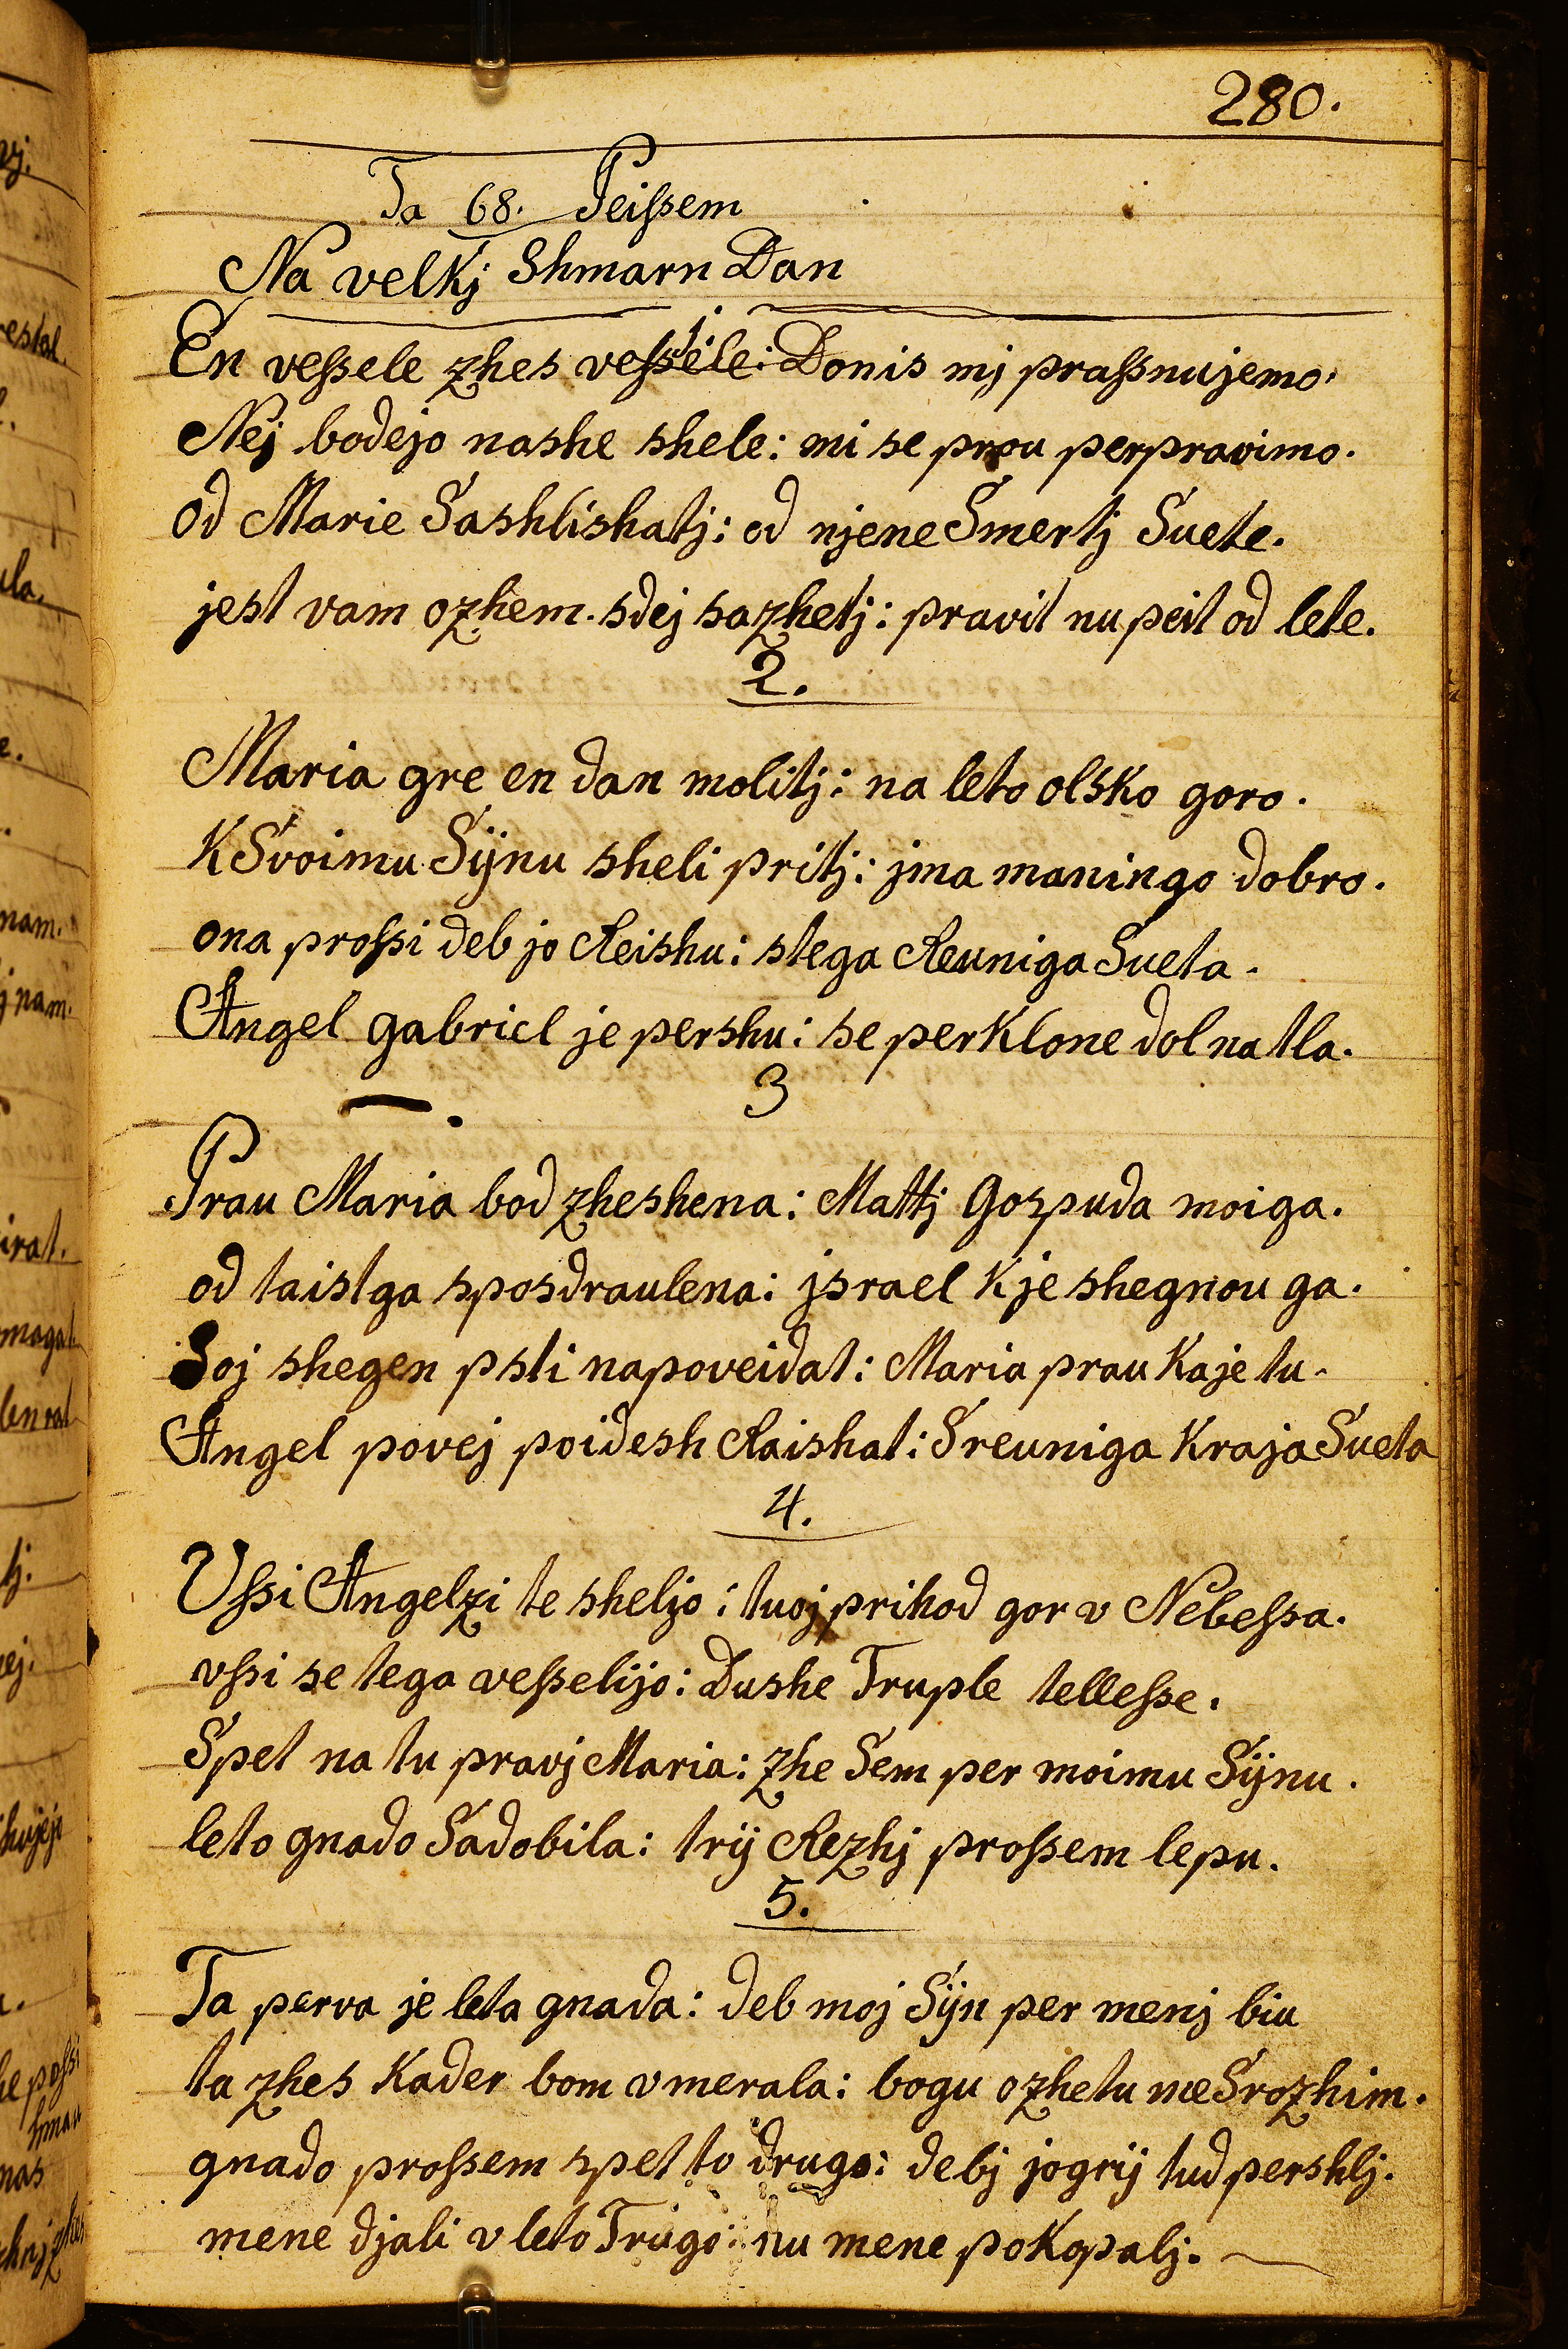 280.
Ta 68. Peiſsem
Na velkj Shmarn Dan
En veſsele zhes veſsele: Donis mj praſsnujemo.
Nej bodejo nashe shele: mi se prou perpravimo.
od Marie Sashlishatj: od njene Smertj Suete.
jest vam ozhem. sdej sazhetj: pravit nu peit od lete.
2.
Maria gre en dan molitj: na leto olsko goro.
K Svoimu Sijnu sheli pritj: jma maningo dobro.
ona proſsi deb jo Reishu: stega Reuniga Sueta.
Angel gabriel je pershu: se perklone dol na tla.
3
Prau Maria bod zheshena: Mattj Gospuda moiga.
od taistga sposdraulena: jsrael k je shegnou ga.
Soj shegen psti napoveidat: Maria prau kaje tu.
Angel povej poidesh Raishat: Sreuniga kraja Sueta
4.
Uſsi Angelzi te sheljo: tuoj prihod gor v Nebeſsa.
vſsi se tega veſselijo: Dushe Truple telleſse.
Spet na tu pravj Maria: zhe Sem per moimu Sijnu.
leto gnado Sadobila: trij Rezhj proſsem lepu.
5.
Ta perva je leta gnada: deb moj Sijn per menj biu
ta zhes kader bom vmerala: bogu ozhetu me Srozhim.
gnado proſsem spet to drugo: debj jogrij tud pershlj.
mene djali v leto Trugo: nu mene pokopalj.